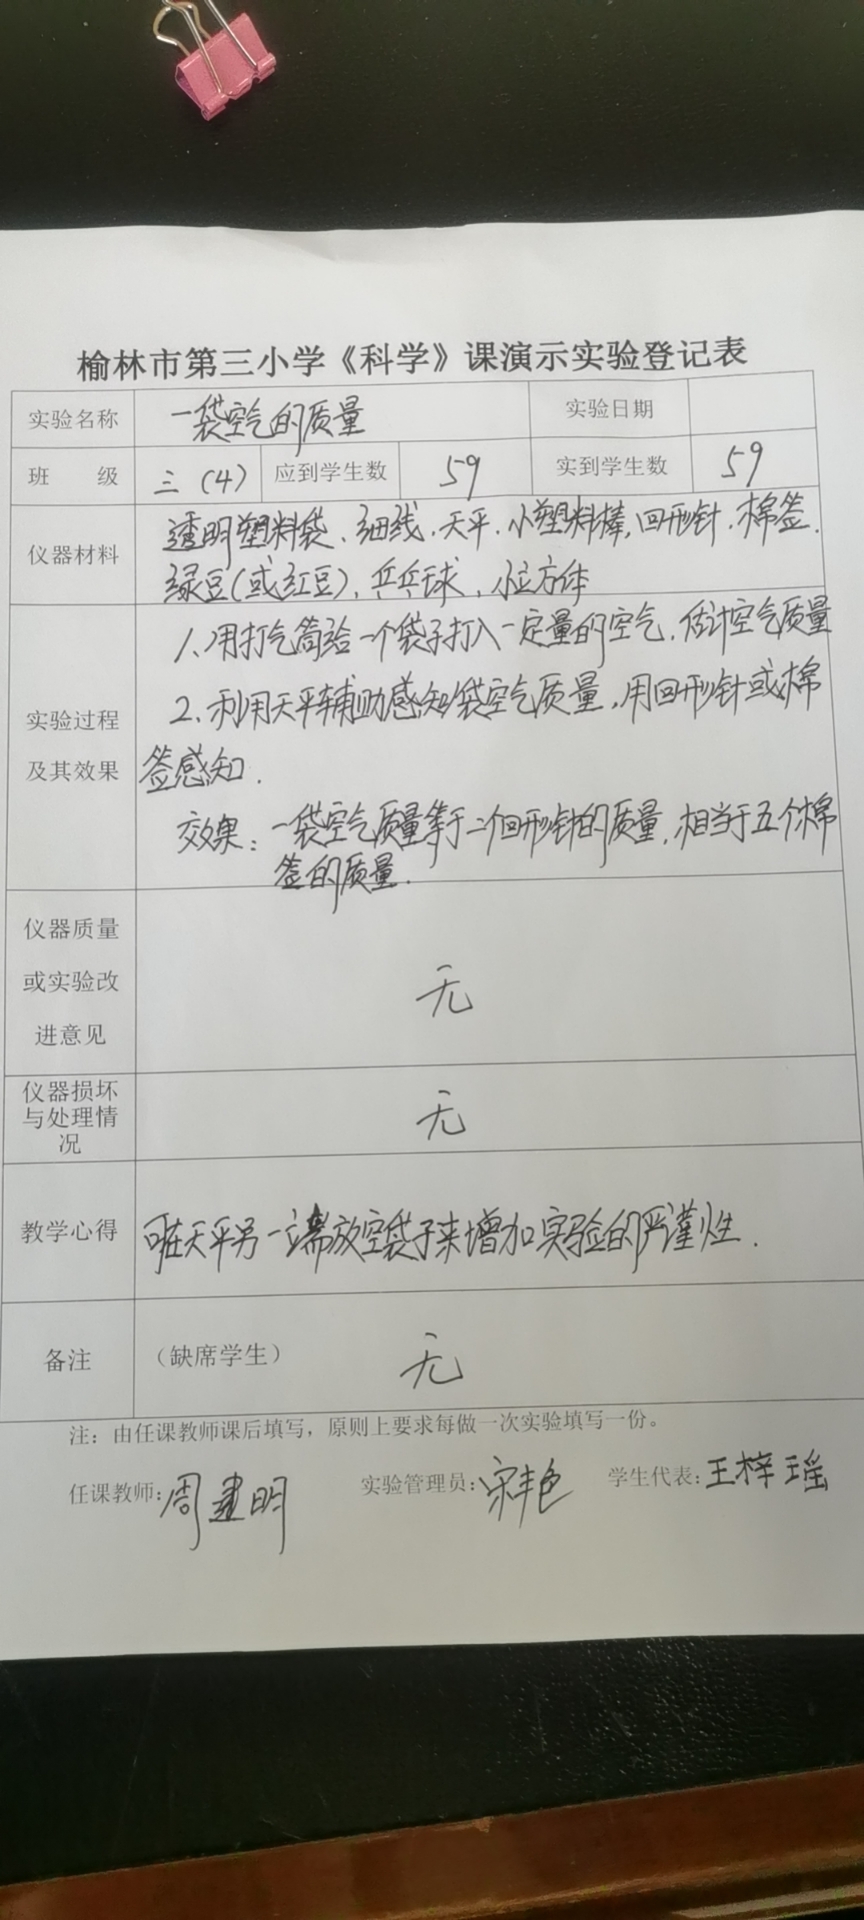 榆林市第三小学《科学》课演示实验登记表
实验名称 一袋空气的质量 实验日期
班 级 三（4） 应到学生数 59 实到学生数 59
仪器材料 透明塑料袋、细线、天平、小塑料棒，回形针、棉签、
绿豆（或红豆）、乒乓球，小立方体
1、用打气筒给一个袋子打入一定量的空气，估计空气质量
实验过程 2、利用天平辅助感知袋空气质量，用回形针或棉
及其效果 签感知．
效果：一袋空气质量等于二个回形针的质量，相当于五个棉
签的质量．
仪器质量
或实验改
进意见
无
仪器损坏
与处理情
况
无
教学心得 可在天平另一端放空袋子来增加实验的严谨性．
备注 （缺席学生） 无
注：由任课教师课后填写，原则上要求每做一次实验填写一份。
任课教师：周建明 实验管理员：宋丰色 学生代表：王梓瑶